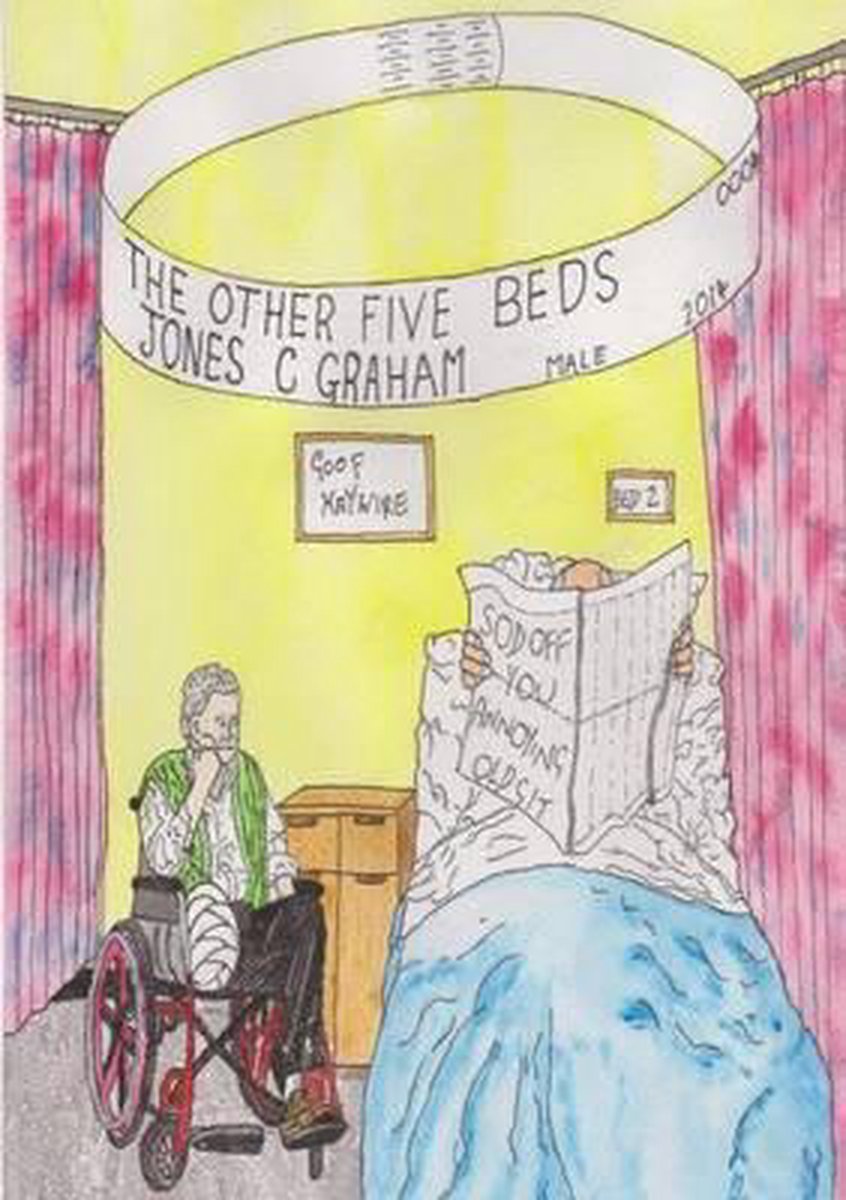 THE OTHER FIVE BEDS
JONES C GRAHAM MALE 2014
GOOF
HAYWIRE
BED 2
SOD OFF
YOU
ANNOYING
OLDSIT